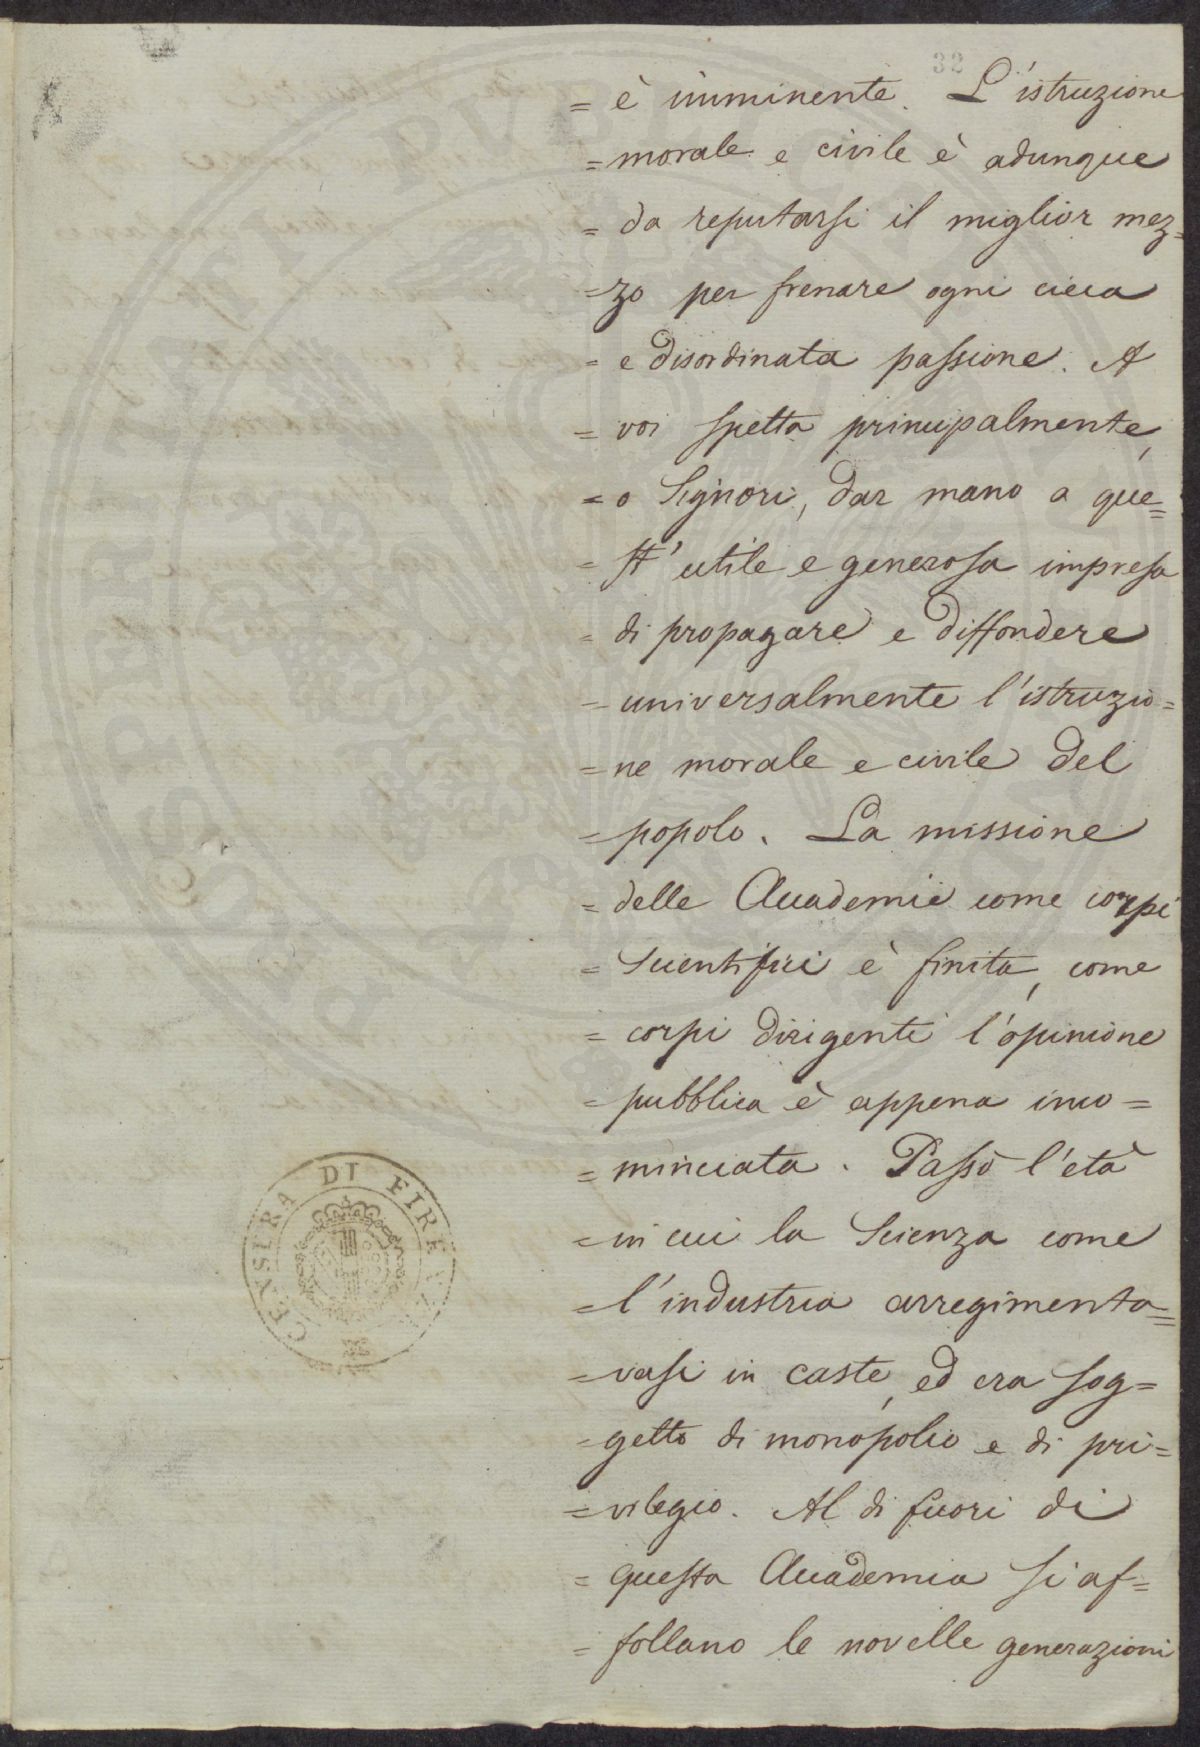 32
= è imminente. L'istruzione
= morale e civile è adunque
= da reputarsi il miglior mez=
= zo per frenare ogni cieca
= e disordinata passione. A
= voi spetta principalmente,
= o Signori, dar mano a que=
= st' utile e generosa impresa
= di propagare e diffondere
= universalmente l'istruzio=
= ne morale e civile del
= popolo. La missione
= delle Accademie come corpi
= Scientifici è finita, come
= corpi dirigenti l'opinione
= pubblica è appena inco=
= minciata. Passò l'età
= in cui la Scienza come
= l'industria arregimenta=
= vasi in caste, ed era sog=
= getto di monopolio e di pri=
= vilegio. Al di fuori di
= questa Accademia si af=
= follano le novelle generazioni
CENSURA DI FIRENZE